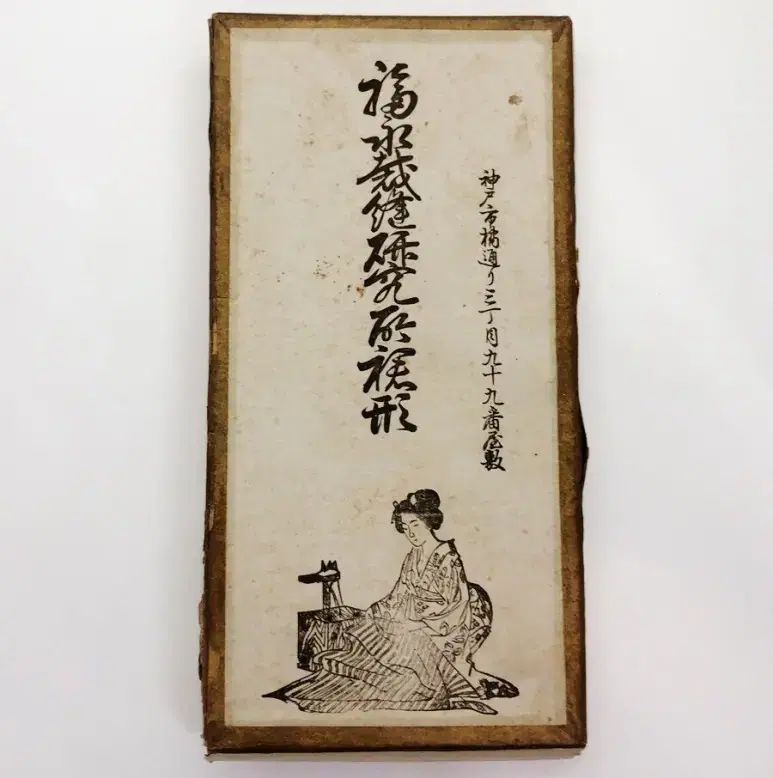 神戸市橘通り三丁目九十九番屋敷
福永裁縫研究所形